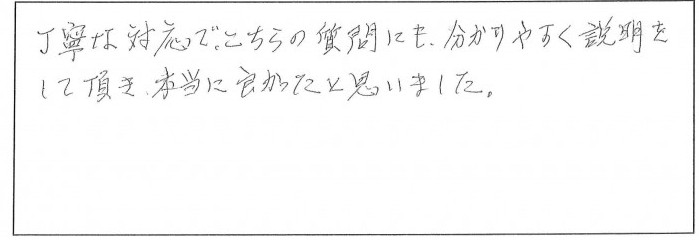 丁寧な対応で、こちらの質問にも、分かりやすく説明を
して頂き、本当に良かったと思いました。